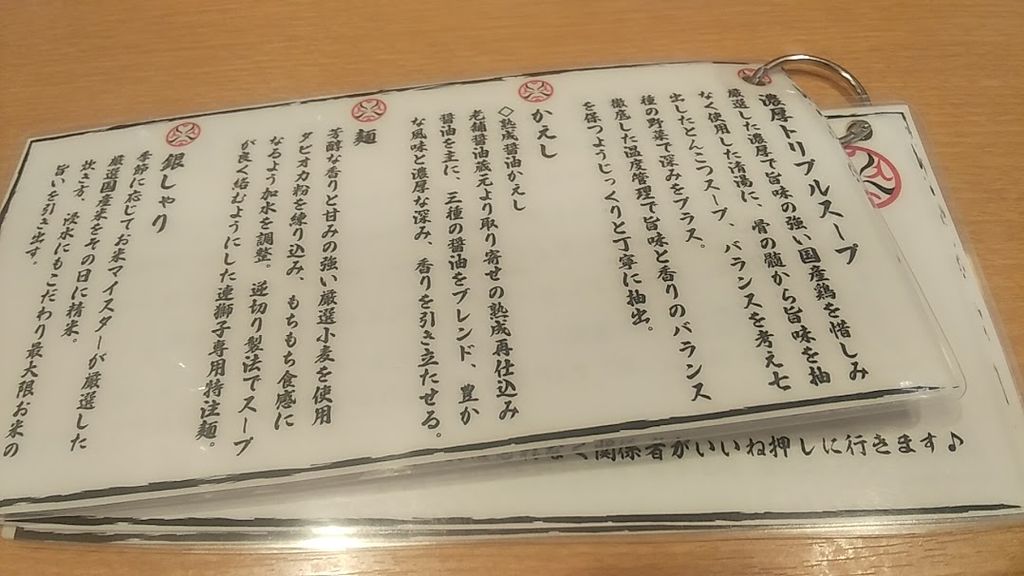 濃厚トリプルスープ
厳選した濃厚で旨味の強い国産鶏を惜しみ
なく使用した清湯に、骨の髄から旨味を抽
出したとんこつスープ、バランスを考え七
種の野菜で深みをプラス。
徹底した温度管理で旨味と香りのバランス
を保つようじっくりと丁寧に抽出。
かえし
◇熟成醤油かえし
老舗醤油蔵元より取り寄せの熟成再仕込み
醤油を主に、三種の醤油をブレンド、豊か
な風味と濃厚な深み、香りを引き立たせる。
麺
芳醇な香りと甘みの強い厳選小麦を使用
タピオカ粉を練り込み、もちもち食感に
なるよう加水を調整。逆切り製法でスープ
が良く絡むようにした連獅子専用特注麺。
銀しゃり
季節に応じてお米マイスターが厳選した
厳選国産米をその日に精米。
炊き方、浸水にもこだわり最大限お米の
旨いを引き出す。
関係者がいいね押しに行きます♪